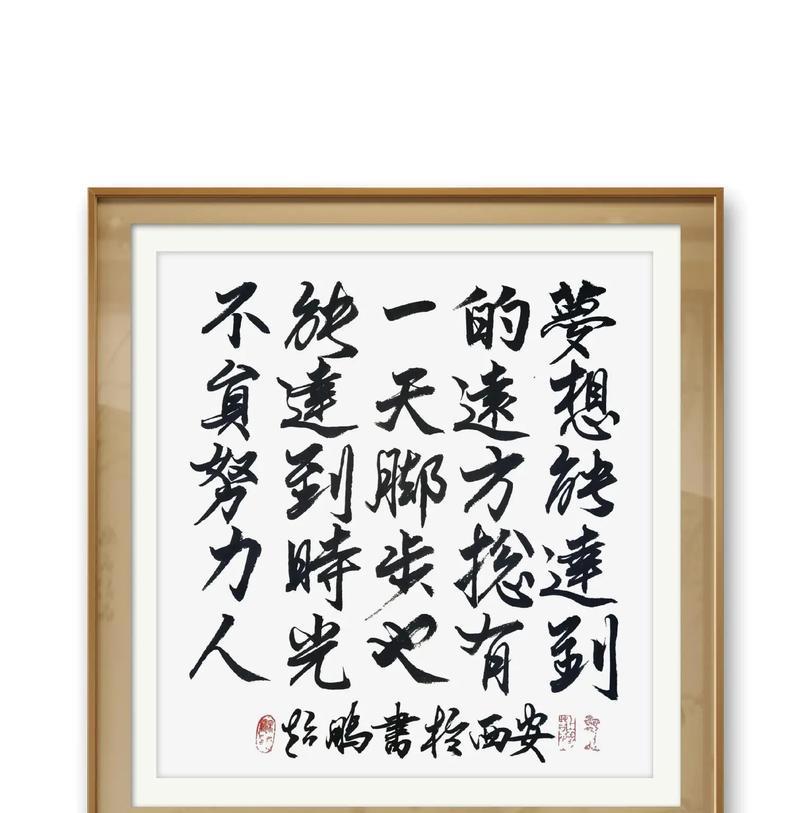 夢想能達到
的遠方捴有
一天脚步也
能達到時光
不負努力人
鵬書於西安